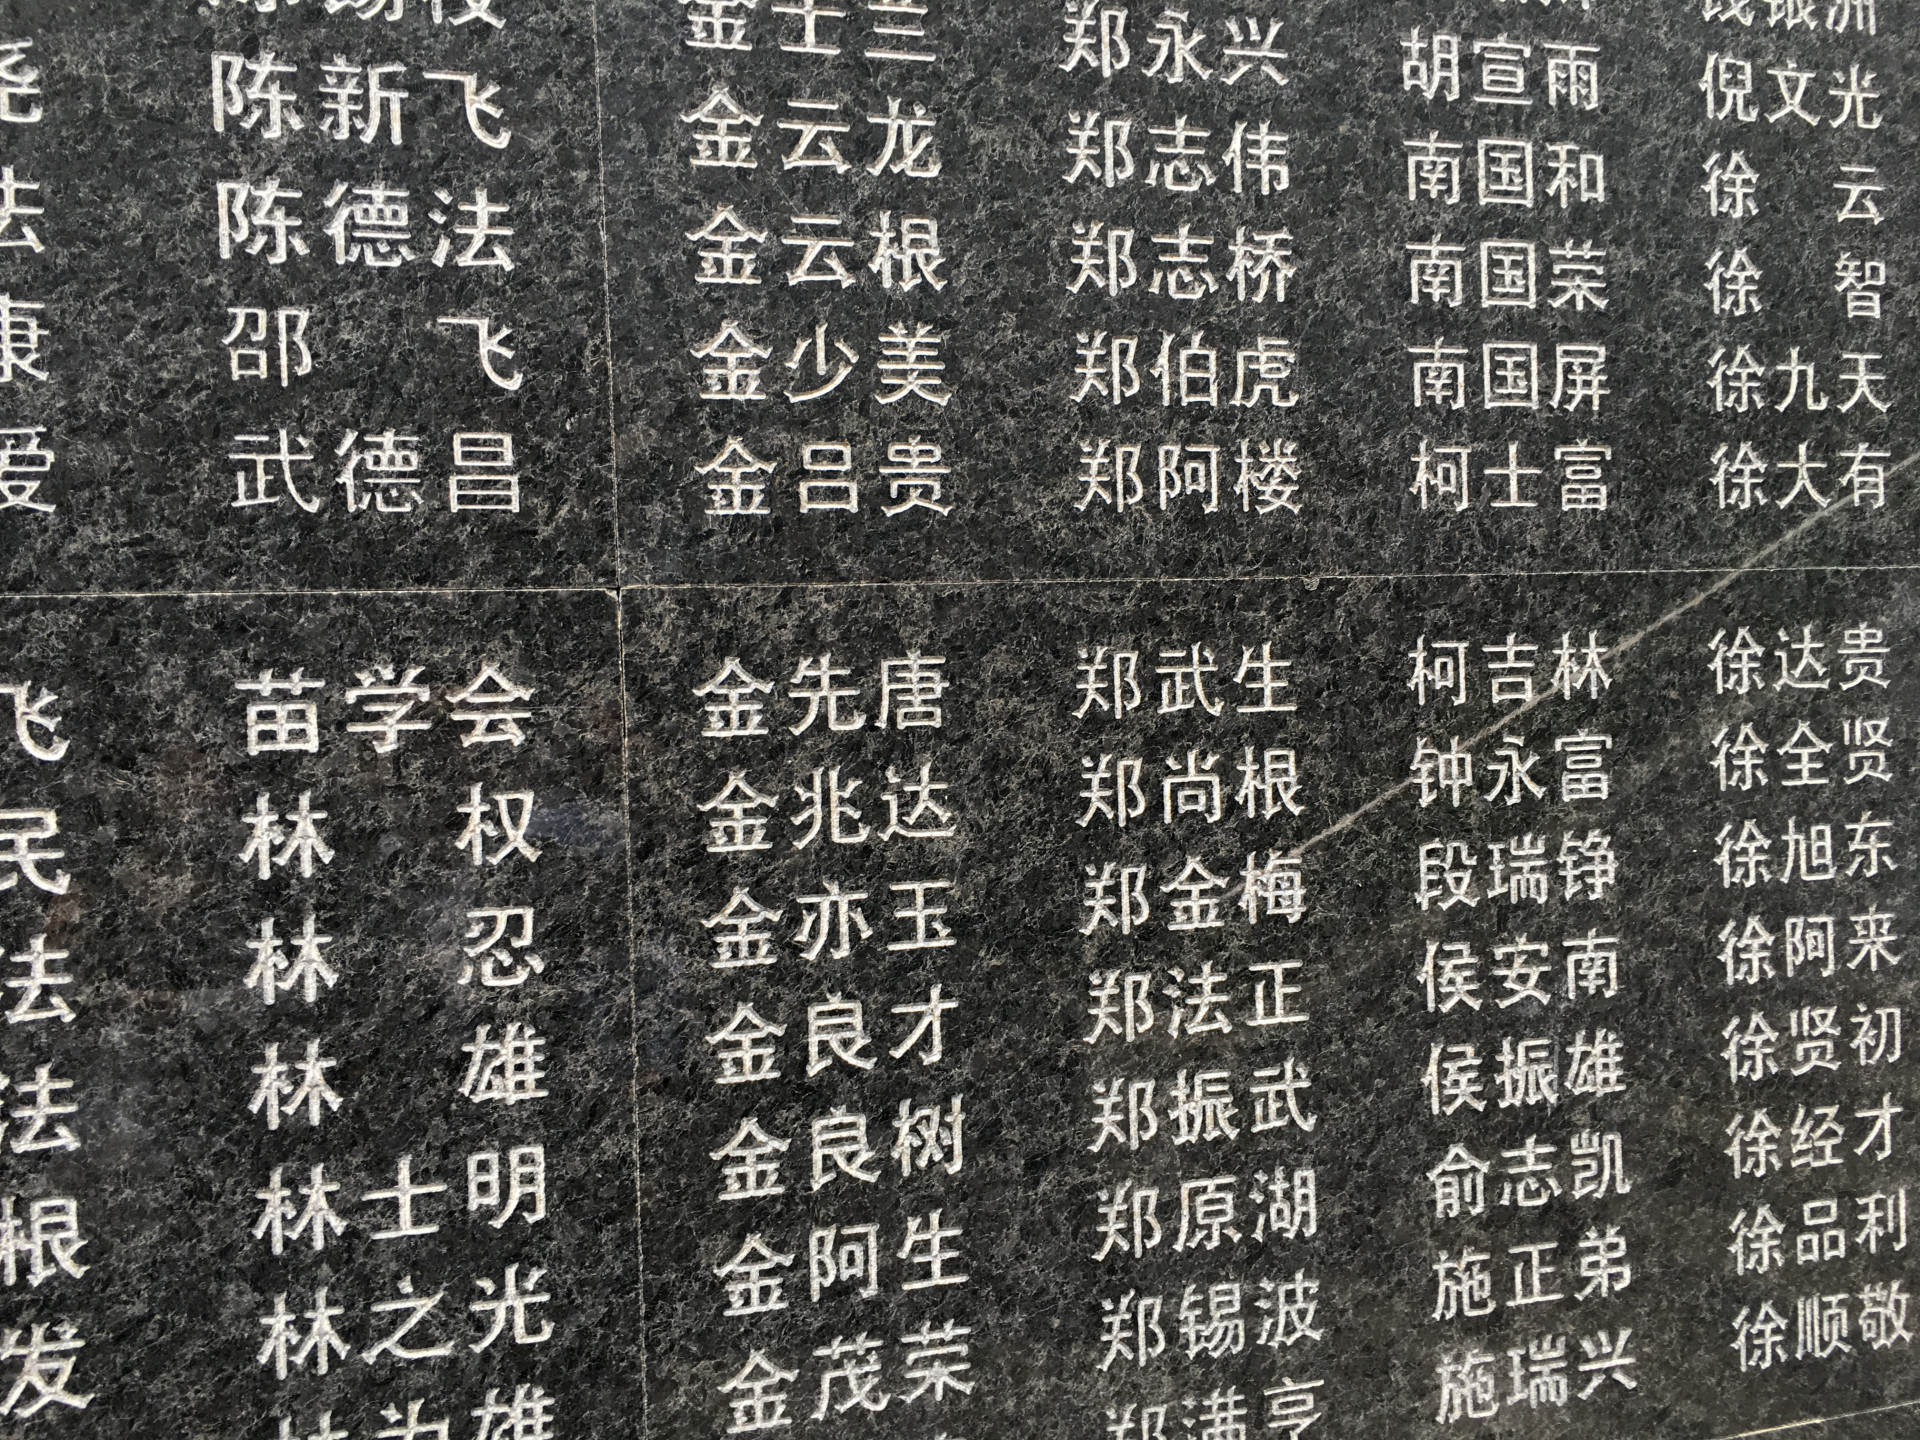 陈新飞
陈德法
邵 飞
武德昌
苗学会
林 权
林 忍
林 雄
林士明
林之光
金士兰
金云龙
金云根
金少美
金吕贵
金先唐
金兆达
金亦玉
金良才
金良树
金阿生
金茂荣
郑永兴
郑志伟
郑志桥
郑伯虎
郑阿楼
郑武生
郑尚根
郑金梅
郑法正
郑振武
郑原湖
郑锡波
郑满亨
胡宣雨
南国和
南国荣
南国屏
柯士富
柯吉林
钟永富
段瑞铮
侯安南
侯振雄
俞志凯
施正弟
施瑞兴
钱银洲
倪文光
徐 云
徐 智
徐九天
徐大有
徐达贵
徐全贤
徐旭东
徐阿来
徐贤初
徐经才
徐品利
徐顺敬